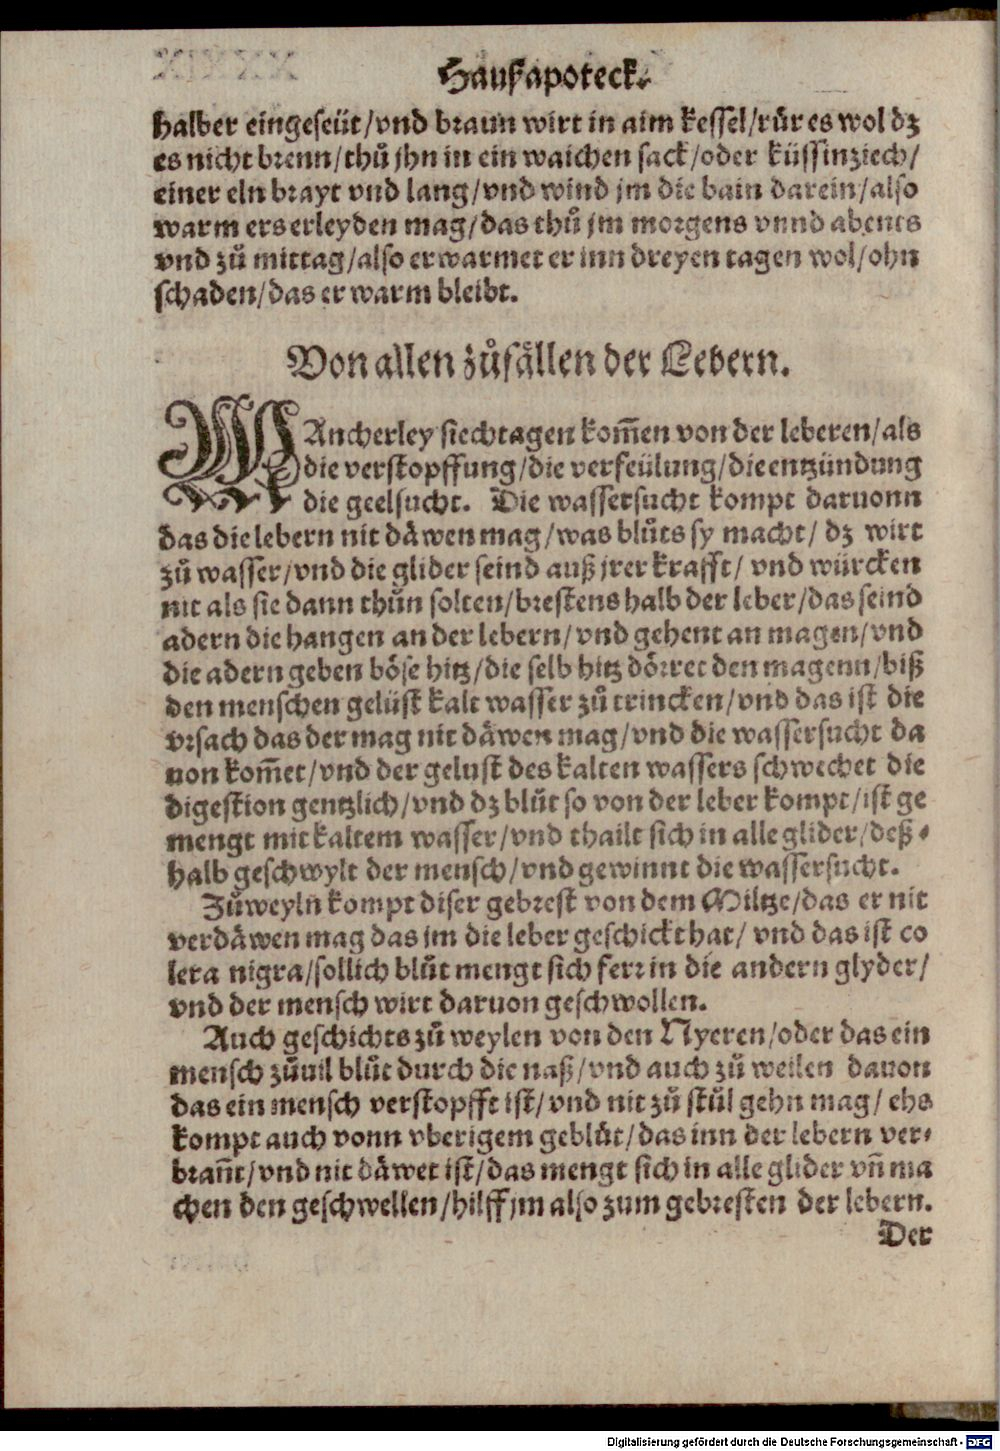 Haußapoteck.
halber eingeseüt/vnd braun wirt in aim kessel/rür es wol dz
es nicht brenn/thů jhn in ein waichen sack/oder küssinziech/
einer eln brayt vnd lang/vnd wind jm die bain darein/also
warm ers erleyden mag/das thů jm morgens vnnd abents
vnd zů mittag/also erwarmet er inn dreyen tagen wol/ohn
schaden/das er warm bleibt.
Von allen zůfällen der Lebern.
MAncherley siechtagen kom̄en von der leberen/als
die verstopffung/die verfeülung/die entzündung
die geelsucht. Die wassersucht kompt daruonn
das die lebern nit däwen mag/was blůts sy macht/ dz wirt
zů wasser/vnd die glider seind auß jrer krafft/ vnd würcken
nit als sie dann thůn solten/brestens halb der leber/das seind
adern die hangen an der lebern/vnd gehent an magen/vnd
die adern geben böse hitz/die selb hitz dörret den magenn/biß
den menschen gelüst kalt wasser zů trincken/vnd das ist die
vrsach das der mag nit däwen mag/vnd die wassersucht da
uon kom̄et/vnd der gelust des kalten wassers schwechet die
digestion gentzlich/vnd dz blůt so von der leber kompt/ist ge
mengt mit kaltem wasser/vnd thailt sich in alle glider/deß-
halb geschwylt der mensch/vnd gewinnt die wassersucht.
Zůweyln kompt diser gebrest von dem Miltze/das er nit
verdäwen mag das jm die leber geschickt hat/ vnd das ist co
lera nigra/sollich blůt mengt sich ferr in die andern glyder/
vnd der mensch wirt daruon geschwollen.
Auch geschichts zů weylen von den Nyeren/oder das ein
mensch zůuil blůt durch die naß/vnd auch zů weilen dauon
das ein mensch verstopfft ist/vnd nit zů stůl gehn mag/ ehs
kompt auch vonn vberigem geblůt/das inn der lebern ver-
bran̄t/vnd nit däwet ist/das mengt sich in alle glider vn̄ ma
chen den geschwellen/hilff jm also zum gebresten der lebern.
Der
Digitalisierung gefördert durch die Deutsche Forschungsgemeinschaft - DFG